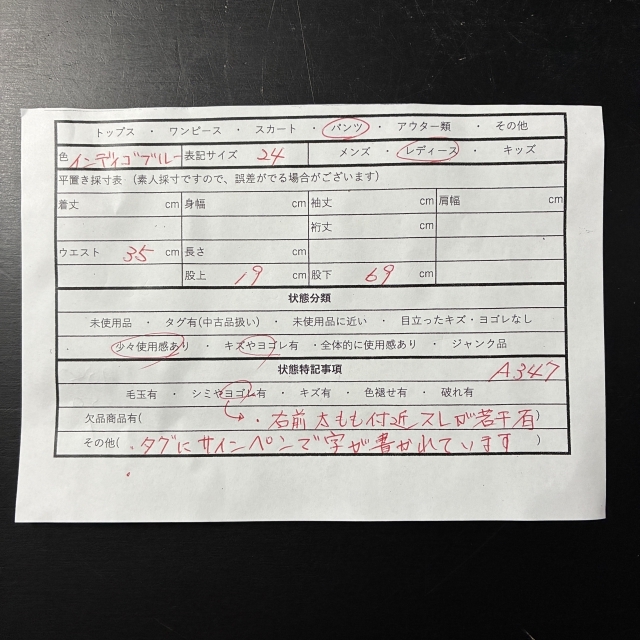 トップス ・ ワンピース ・ スカート ・ パンツ ・ アウター類 ・ その他
色 インディゴブルー 表記サイズ 24 メンズ ・ レディース ・ キッズ
平置き採寸表 (素人採寸ですので、誤差がでる場合がございます)
着丈 cm 身幅 cm 袖丈 cm 肩幅 cm
裄丈 cm
ウエスト 35 cm 長さ cm
股上 19 cm 股下 69 cm
状態分類
未使用品 ・ タグ有(中古品扱い) ・ 未使用品に近い ・ 目立ったキズ・ヨゴレなし
少々使用感あり ・ キズやヨゴレ有 ・全体的に使用感あり ・ ジャンク品
状態特記事項 A347
毛玉有 ・ シミやヨゴレ有 ・ キズ有 ・ 色褪せ有 ・ 破れ有
欠品商品有( ・右前太もも付近スレが若干有 )
その他( ・タグにサインペンで字が書かれています )